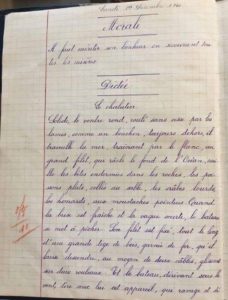 Lundi 19 Décembre 19
Morale
Il faut mériter son bonheur en secourant tou-
tes les misères
Dictée
Le chalutier
Solide, le ventre rond, roulé sans cesse par les
lames, comme un bouchon, toujours dehors, il
travaille la mer, traînant par le flanc, un
grand filet, qui râcle le fond de l'Océan, cueil-
lle les bêtes endormies dans les roches, les pois-
sons plats, collés au sable, les crabes lourds,
les homards, aux moustaches pointues. Quand
la brise est fraîche et la vague courte, le bateau
se met à pêcher. Son filet est fixé, tout le long
d'une grande tige de bois, garnie de fer, qu'il
laisse descendre, au moyen de deux câbles, glissant
sur deux rouleaux. Et le bateau, dérivant sous le
vent, tire avec lui cet appareil, qui ravage et dé